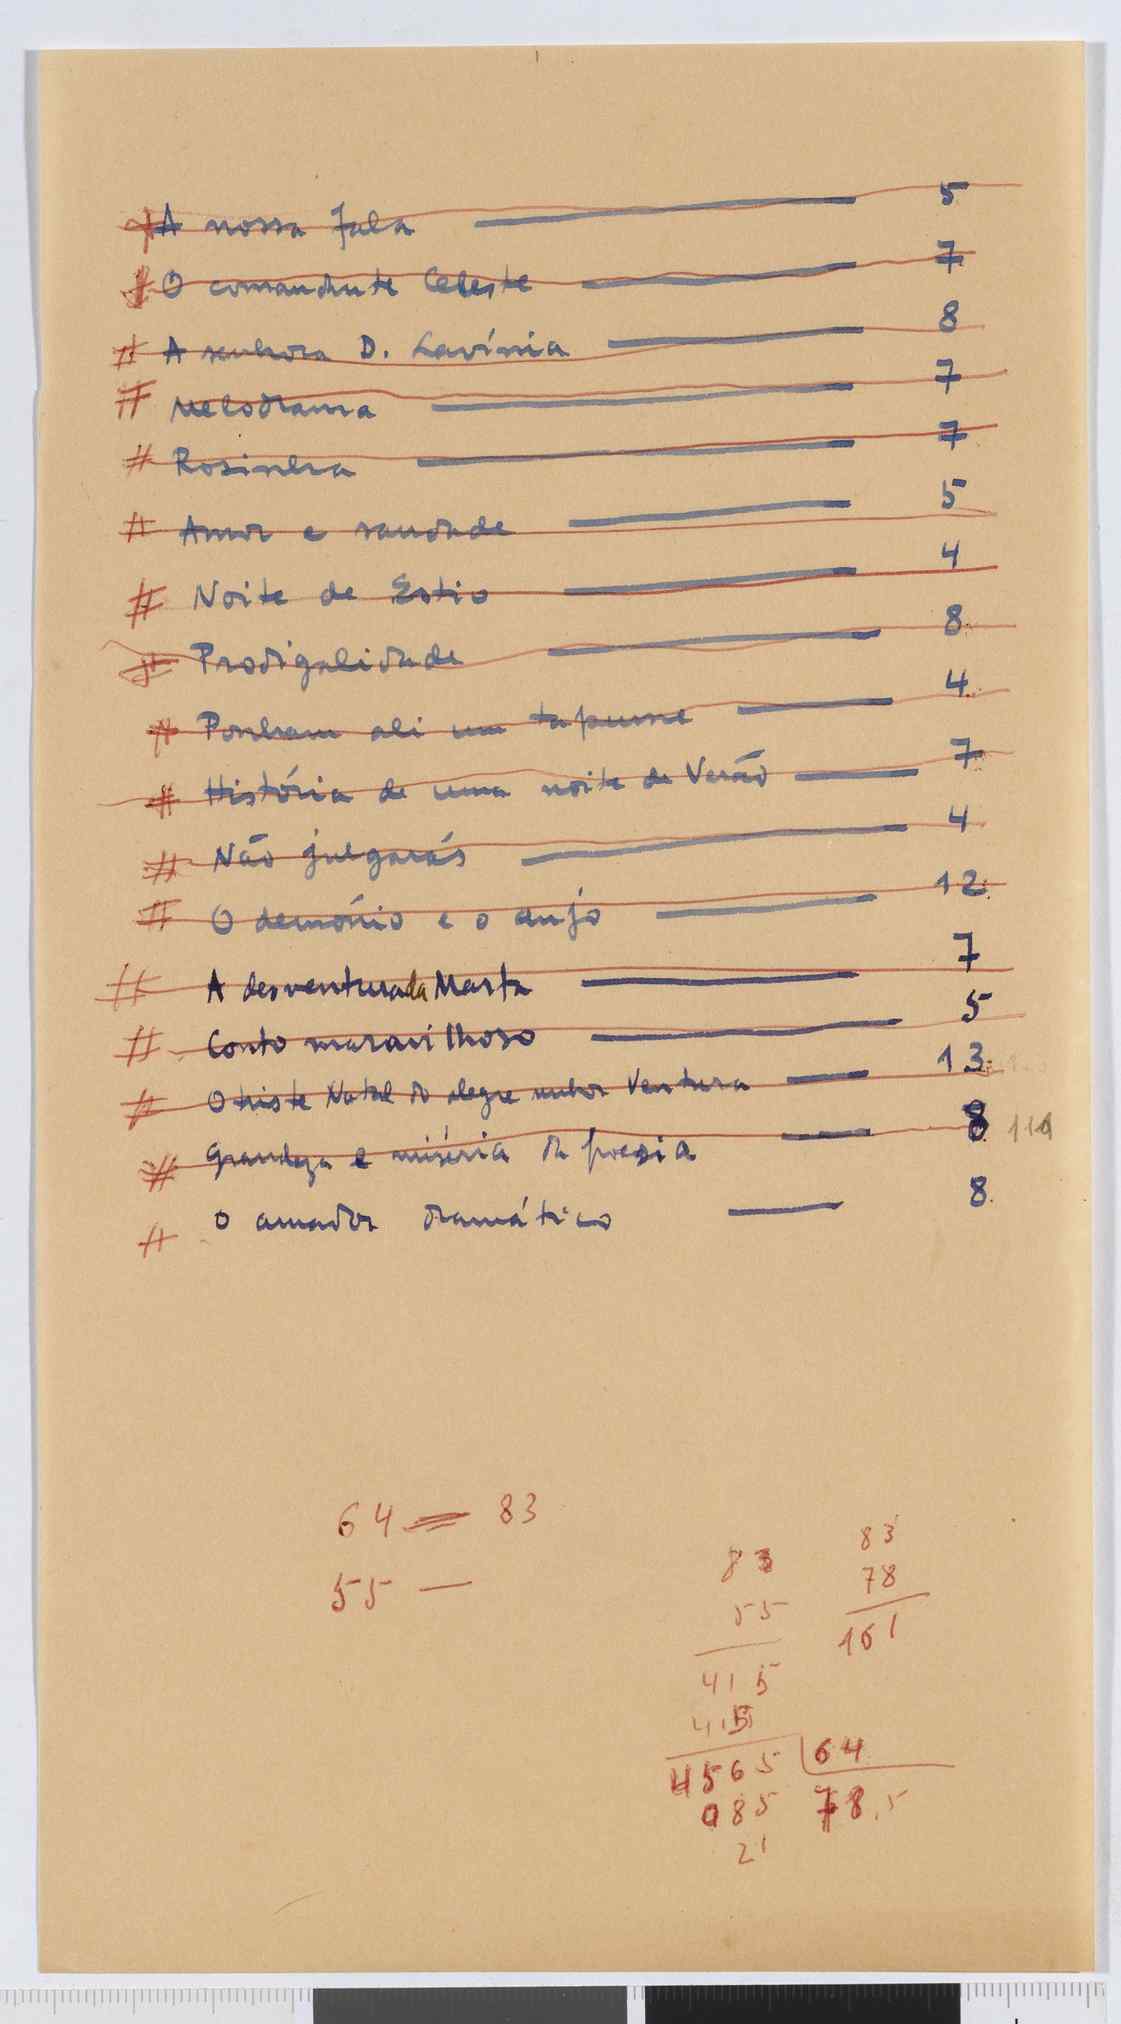 # A nossa fala — 5
# O comandante Celeste — 7
# A senhora D. Lavínia — 8
# Melodrama — 7
# Rosinha — 7
# Amor e saudade — 5
# Noite de Estio — 4
# Prodigalidade — 8
# Ponham ali um tapume — 4
# História de uma noite de Verão — 7
# Não julgarás — 4
# O demónio e o anjo — 12
# A desventura da Marta — 7
# Conto maravilhoso — 5
# O triste Natal do alegre senhor Ventura — 13
# Grandeza e miséria da poesia — 8 114
# O amador dramático — 8
64 — 83
55 —
83
55
415
415
4565 64
085 78,5
21
83
78
161